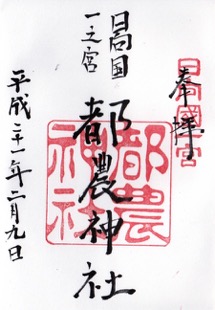 奉拝
日向国
一之宮
都農神社
平成二十一年二月九日
都農
神社